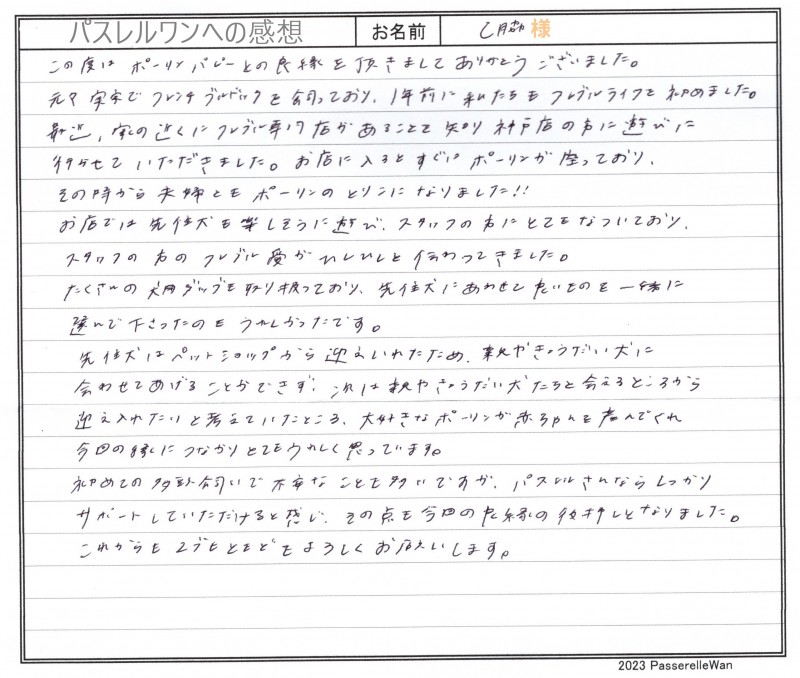 パスレルワンへの感想 お名前 様
この度は ポーリンパピーとの良縁を頂きまして ありがとう ございました。
元々 実家で フレンチブルドックを飼っており、1年前に 私たちも フレブルライフを 初めました。
最近、家の近くに フレブル専門店があることを 知り 神戸店の方に 遊びに
行かせて いただきました。お店に入ると すぐに ポーリンが 座っており、
その時から 夫婦とも ポーリンの とりこに なりました!!
お店では 先住犬も 楽しそうに 遊び、スタッフの方に とても なついており、
スタッフの 方の フレブル 愛が ひしひしと 伝わってきました。
たくさんの 犬用グッズも 取り扱っており、先住犬にあわせて 良いものを 一緒に
選んで 下さったのも うれしかったです。
先住犬は ペットショップから 迎えいれたため、親やきょうだい犬に
会わせてあげる ことができず、次は 親や きょうだい犬たちと 会えるところから
迎え入れたいと 考えていたところ、大好きな ポーリンが 赤ちゃんを 産んでくれ
今回の縁に つながり とてもうれしく 思っています。
初めての 多頭飼いで 不安な ことも 多いですが、パスレルさんなら しっかり
サポート していただけると 感じ、その点も 今回の 良縁の 後押しと なりました。
これからも 2ブヒ ともども よろしく お願いします。
2023 PasserelleWan